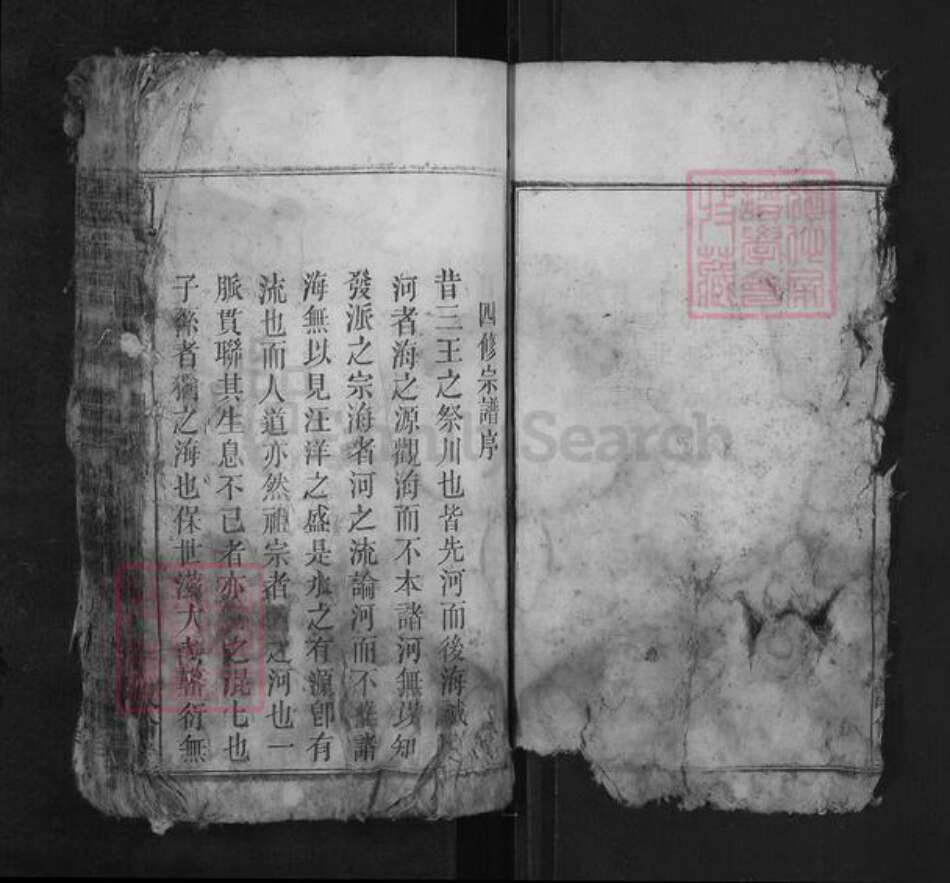 四修宗譜序
昔三王之祭川也皆先河而後海誠
河者海之源觀海而不本諸河無以知
發派之宗海者河之流論河而不推諸
海無以見汪洋之盛是水之有源卽有
流也而人道亦然祖宗者之河也一
脈貫聯其生息不已者亦之混七也
子孫者猶之海也保世滋大衍無
FamilySearch